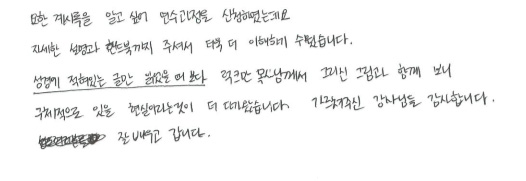 요한 계시록을 알고 싶어 연수과정을 신청하였는데요
자세한 설명과 핸드북까지 주셔서 더욱 더 이해하기 수월했습니다.
성경에 적혀있는 글만 읽었을 때 보다 목사님께서 그리신 그림과 함께 보니
구체적으로 있을 현실이라는것이 더 다가왔습니다. 가르쳐주신 강사님들 감사합니다.
잘 배우고 갑니다.